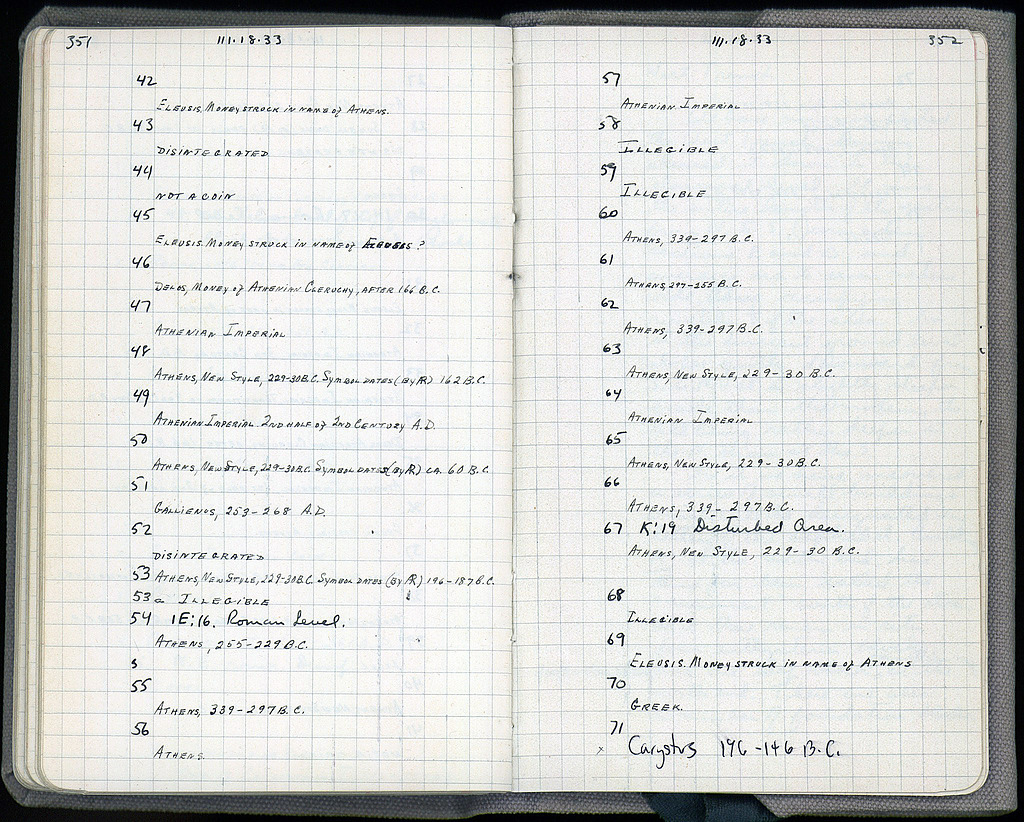 351 111·18·33
42
ELEUSIS. MONEY STRUCK IN NAME OF ATHENS.
43
DISINTEGRATED
44
NOT A COIN
45
ELEUSIS. MONEY STRUCK IN NAME OF ?
46
DELOS, MONEY OF ATHENIAN CLERUCHY, AFTER 166 B.C.
47
ATHENIAN IMPERIAL
48
ATHENS, NEW STYLE, 229-30 B.C. SYMBOL DATES (BY Æ) 162 B.C.
49
ATHENIAN IMPERIAL. 2ND HALF OF 2ND CENTURY A.D.
50
ATHENS, NEW STYLE, 229-30 B.C. SYMBOL DATES (BY Æ) CA. 60 B.C.
51
GALLIENUS, 253-268 A.D.
52
DISINTEGRATED
53 ATHENS, NEW STYLE, 229-30 B.C. SYMBOL DATES (BY Æ) 196-187 B.C.
53a ILLEGIBLE
54 1E:16. Roman Level.
ATHENS, 255-229 B.C.
5
55
ATHENS, 339-297 B.C.
56
ATHENS.
111·18·33 352
57
ATHENIAN IMPERIAL
58
ILLEGIBLE
59
ILLEGIBLE
60
ATHENS, 339-297 B.C.
61
ATHENS, 297-255 B.C.
62
ATHENS, 339-297 B.C.
63
ATHENS, NEW STYLE, 229-30 B.C.
64
ATHENIAN IMPERIAL
65
ATHENS, NEW STYLE, 229-30 B.C.
66
ATHENS, 339-297 B.C.
67 K:19 Disturbed Area.
ATHENS, NEW STYLE, 229-30 B.C.
68
ILLEGIBLE
69
ELEUSIS. MONEY STRUCK IN NAME OF ATHENS
70
GREEK.
71
x Carystus 196-146 B.C.